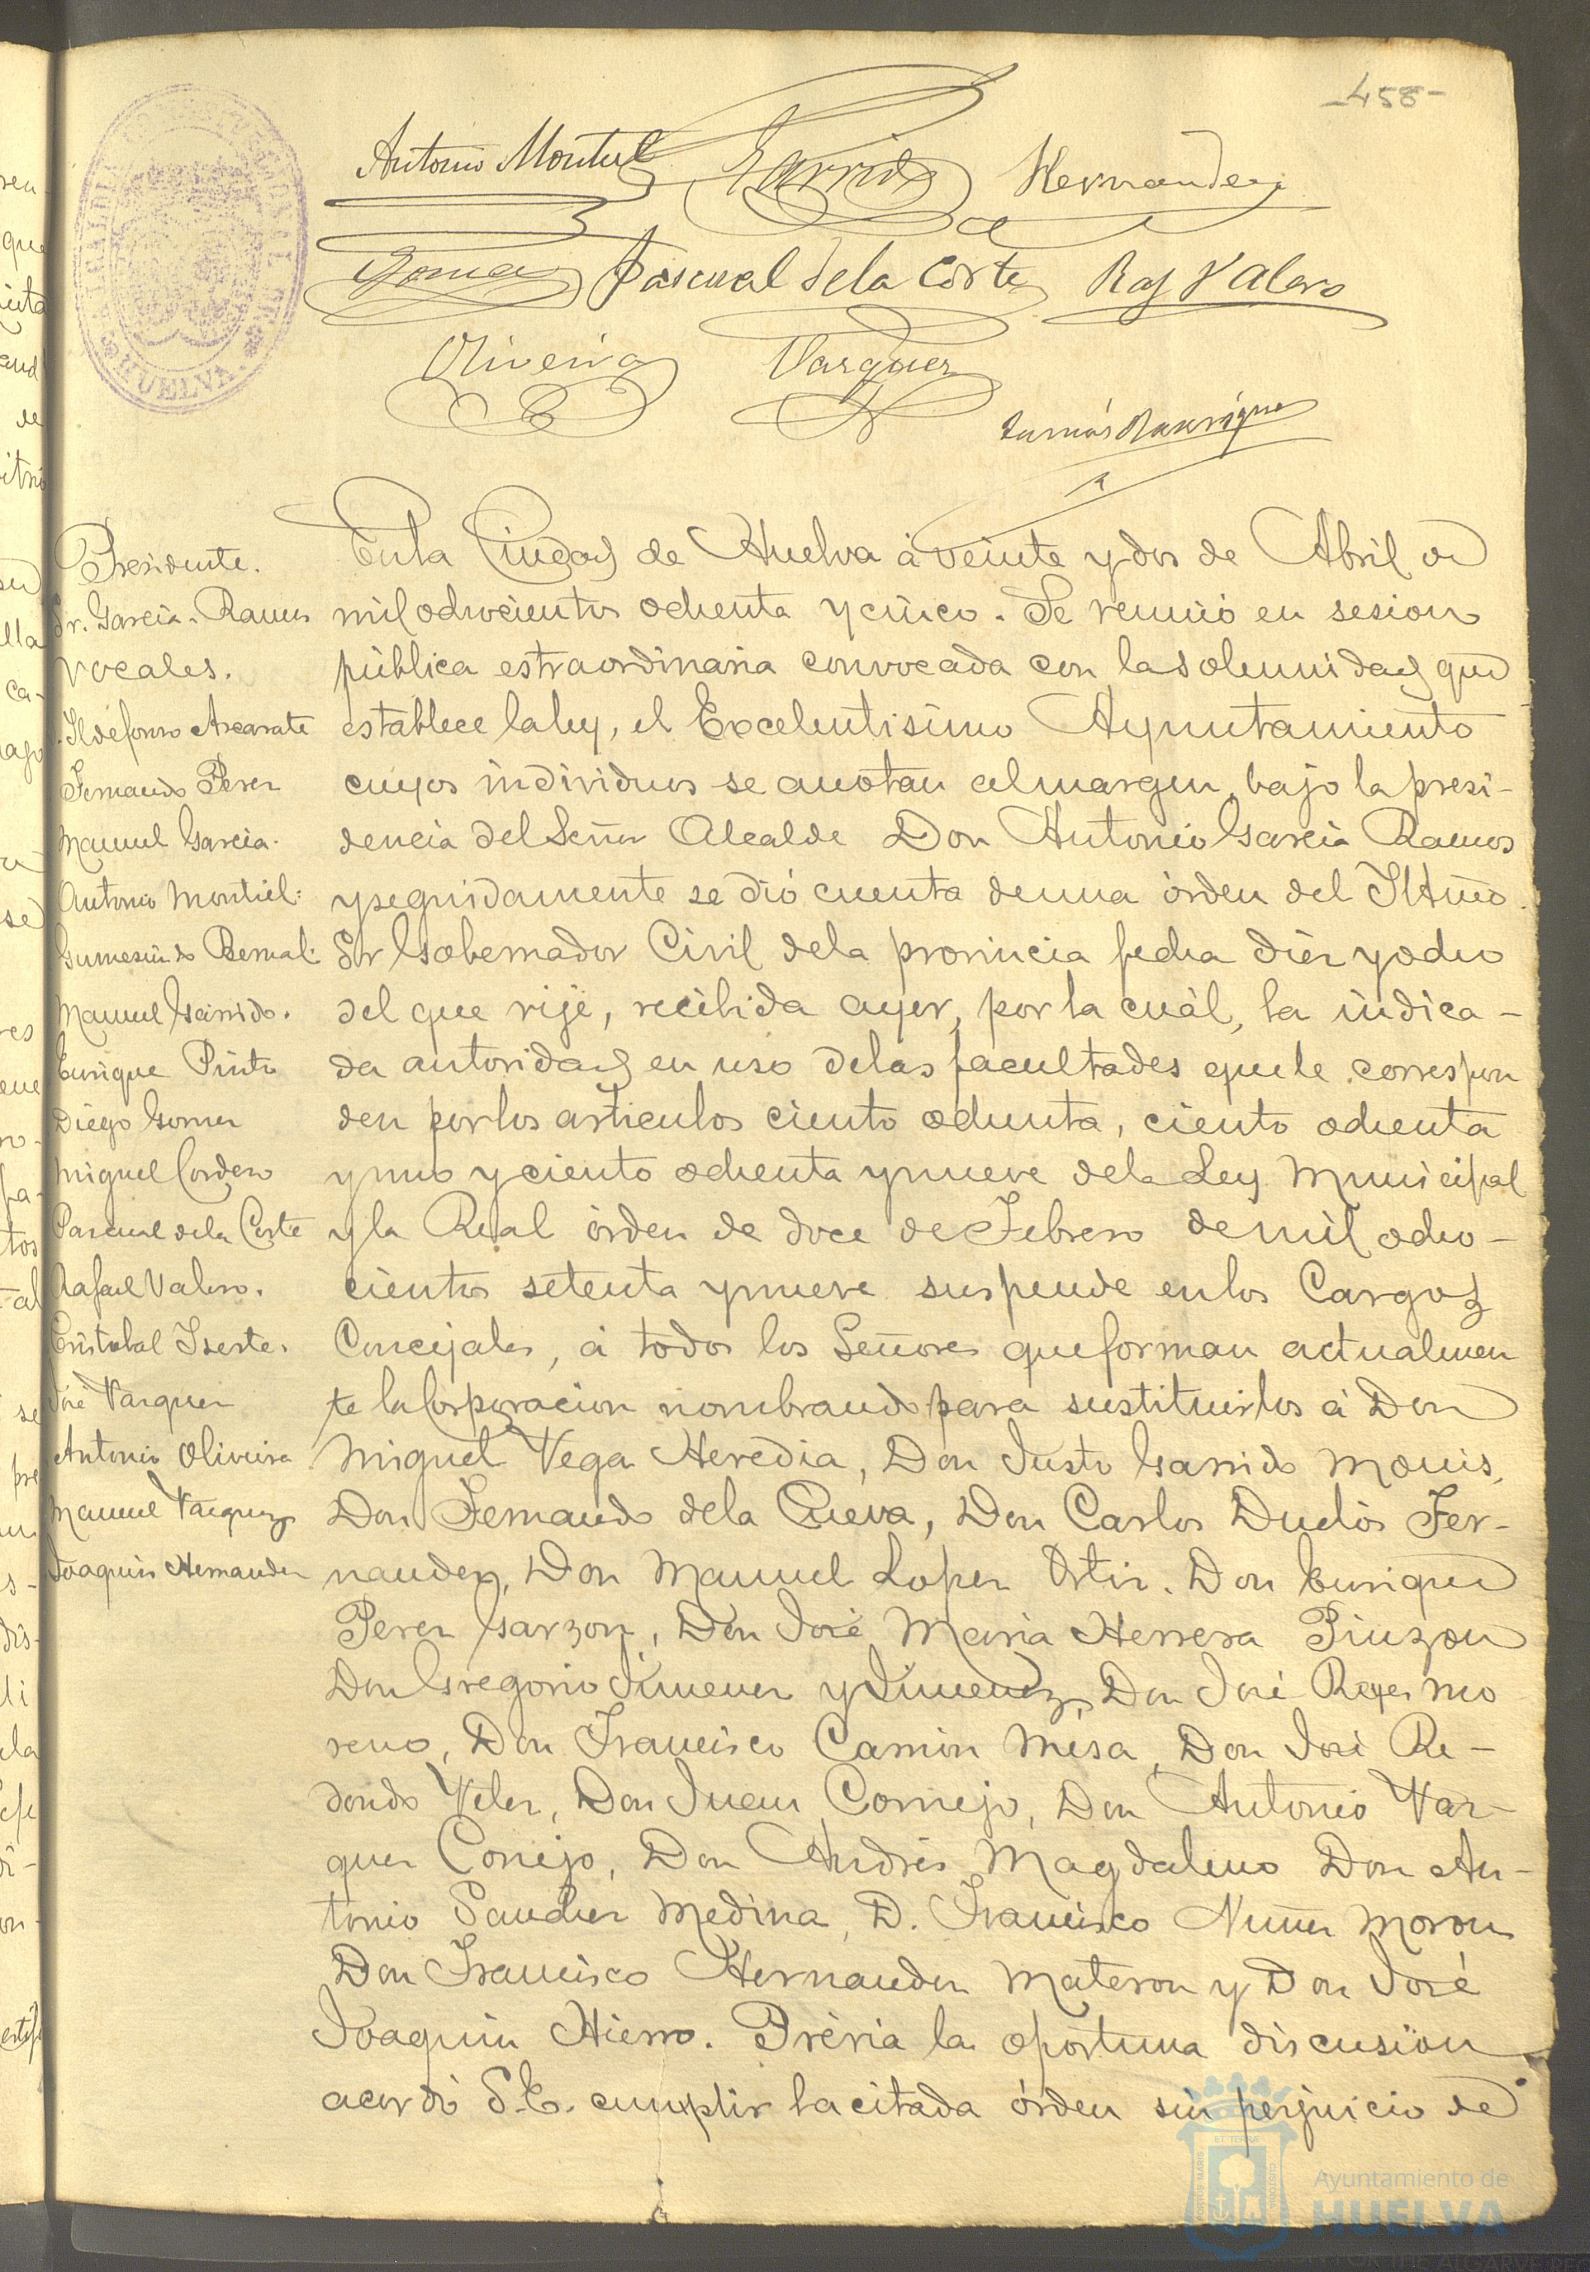 -458-
Antonio Montiel Garrido Hernandez
Gomez Pascual de la Corte Raf Valero
Oliveira Vazquez
HUELVA
Presidente.
Sr. Garcia Ramos
Vocales.
Ildefonso Azcarate
Fernando Perez
Manuel Garcia.
Antonio Montiel.
Gumesindo Bernal.
Manuel Garrido.
Enrique Pinto
Diego Gomez
Miguel Cordero
Pascual de la Corte
Rafael Valero.
Cristobal Iserte.
José Vazquez
Antonio Oliveira
Manuel Vazquez
Joaquin Hernandez
En la Ciudad de Huelva á veinte y dos de Abril de
mil ochocientos ochenta y cinco. Se reunió en sesion
pública estraordinaria convocada con la solemnidad que
establece la ley, el Excelentisimo Ayuntamiento
cuyos individuos se anotan al margen, bajo la presi-
dencia del Señor Alcalde Don Antonio Garcia Ramos
y seguidamente se dió cuenta de una órden del Iltmo.
Sr Gobernador Civil de la provincia fecha diez y ocho
del que rije, recibida ayer, por la cuál, la indica-
da autoridad en uso de las facultades que le correspon
den por los articulos ciento ochenta, ciento ochenta
y uno y ciento ochenta y nueve de la Ley Municipal
y la Real órden de doce de Febrero de mil ocho-
cientos setenta y nueve suspende en los Cargos
Concejales, á todos los Señores que forman actualmen
te la Corporacion nombrando para sustituirlos á Don
Miguel Vega Heredia, Don Justo Garrido Mouis,
Don Fernando de la Cueva, Don Carlos Duclós Fer-
nandez, Don Manuel Lopez Ortiz. Don Enrique
Perez Garzon, Don José Maria Herrera Pinzon
Don Gregorio Jimenez y Jimenez, Don José Reyes Mo
reno, Don Francisco Camin Misa, Don José Re-
dondo Velez, Don Juan Cornejo, Don Antonio Vaz-
quez Conejo, Don Andrés Magdaleno Don An-
tonio Sanchez Medina, D. Francisco Nuñez Moron
Don Francisco Hernandez Materon y Don José
Joaquin Hierro. Prévia la oportuna discusion
acordó S.E. cumplir la citada órden sin perjuicio de
Ayuntamiento de
HUELVA